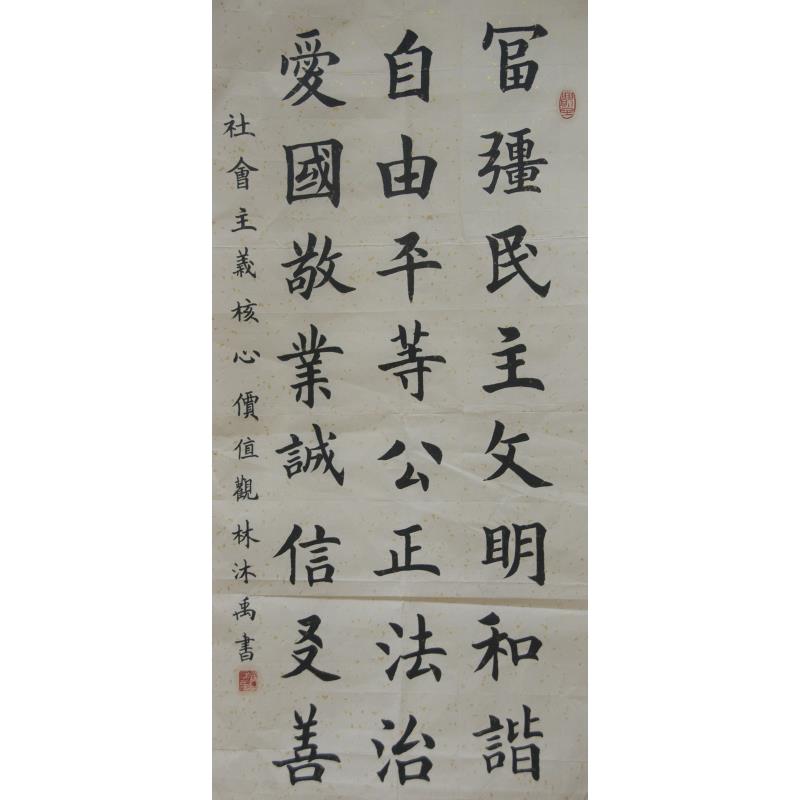 冨彊民主文明和諧
自由平等公正法治
愛國敬業誠信友善
社會主義核心價值觀林沐禹書